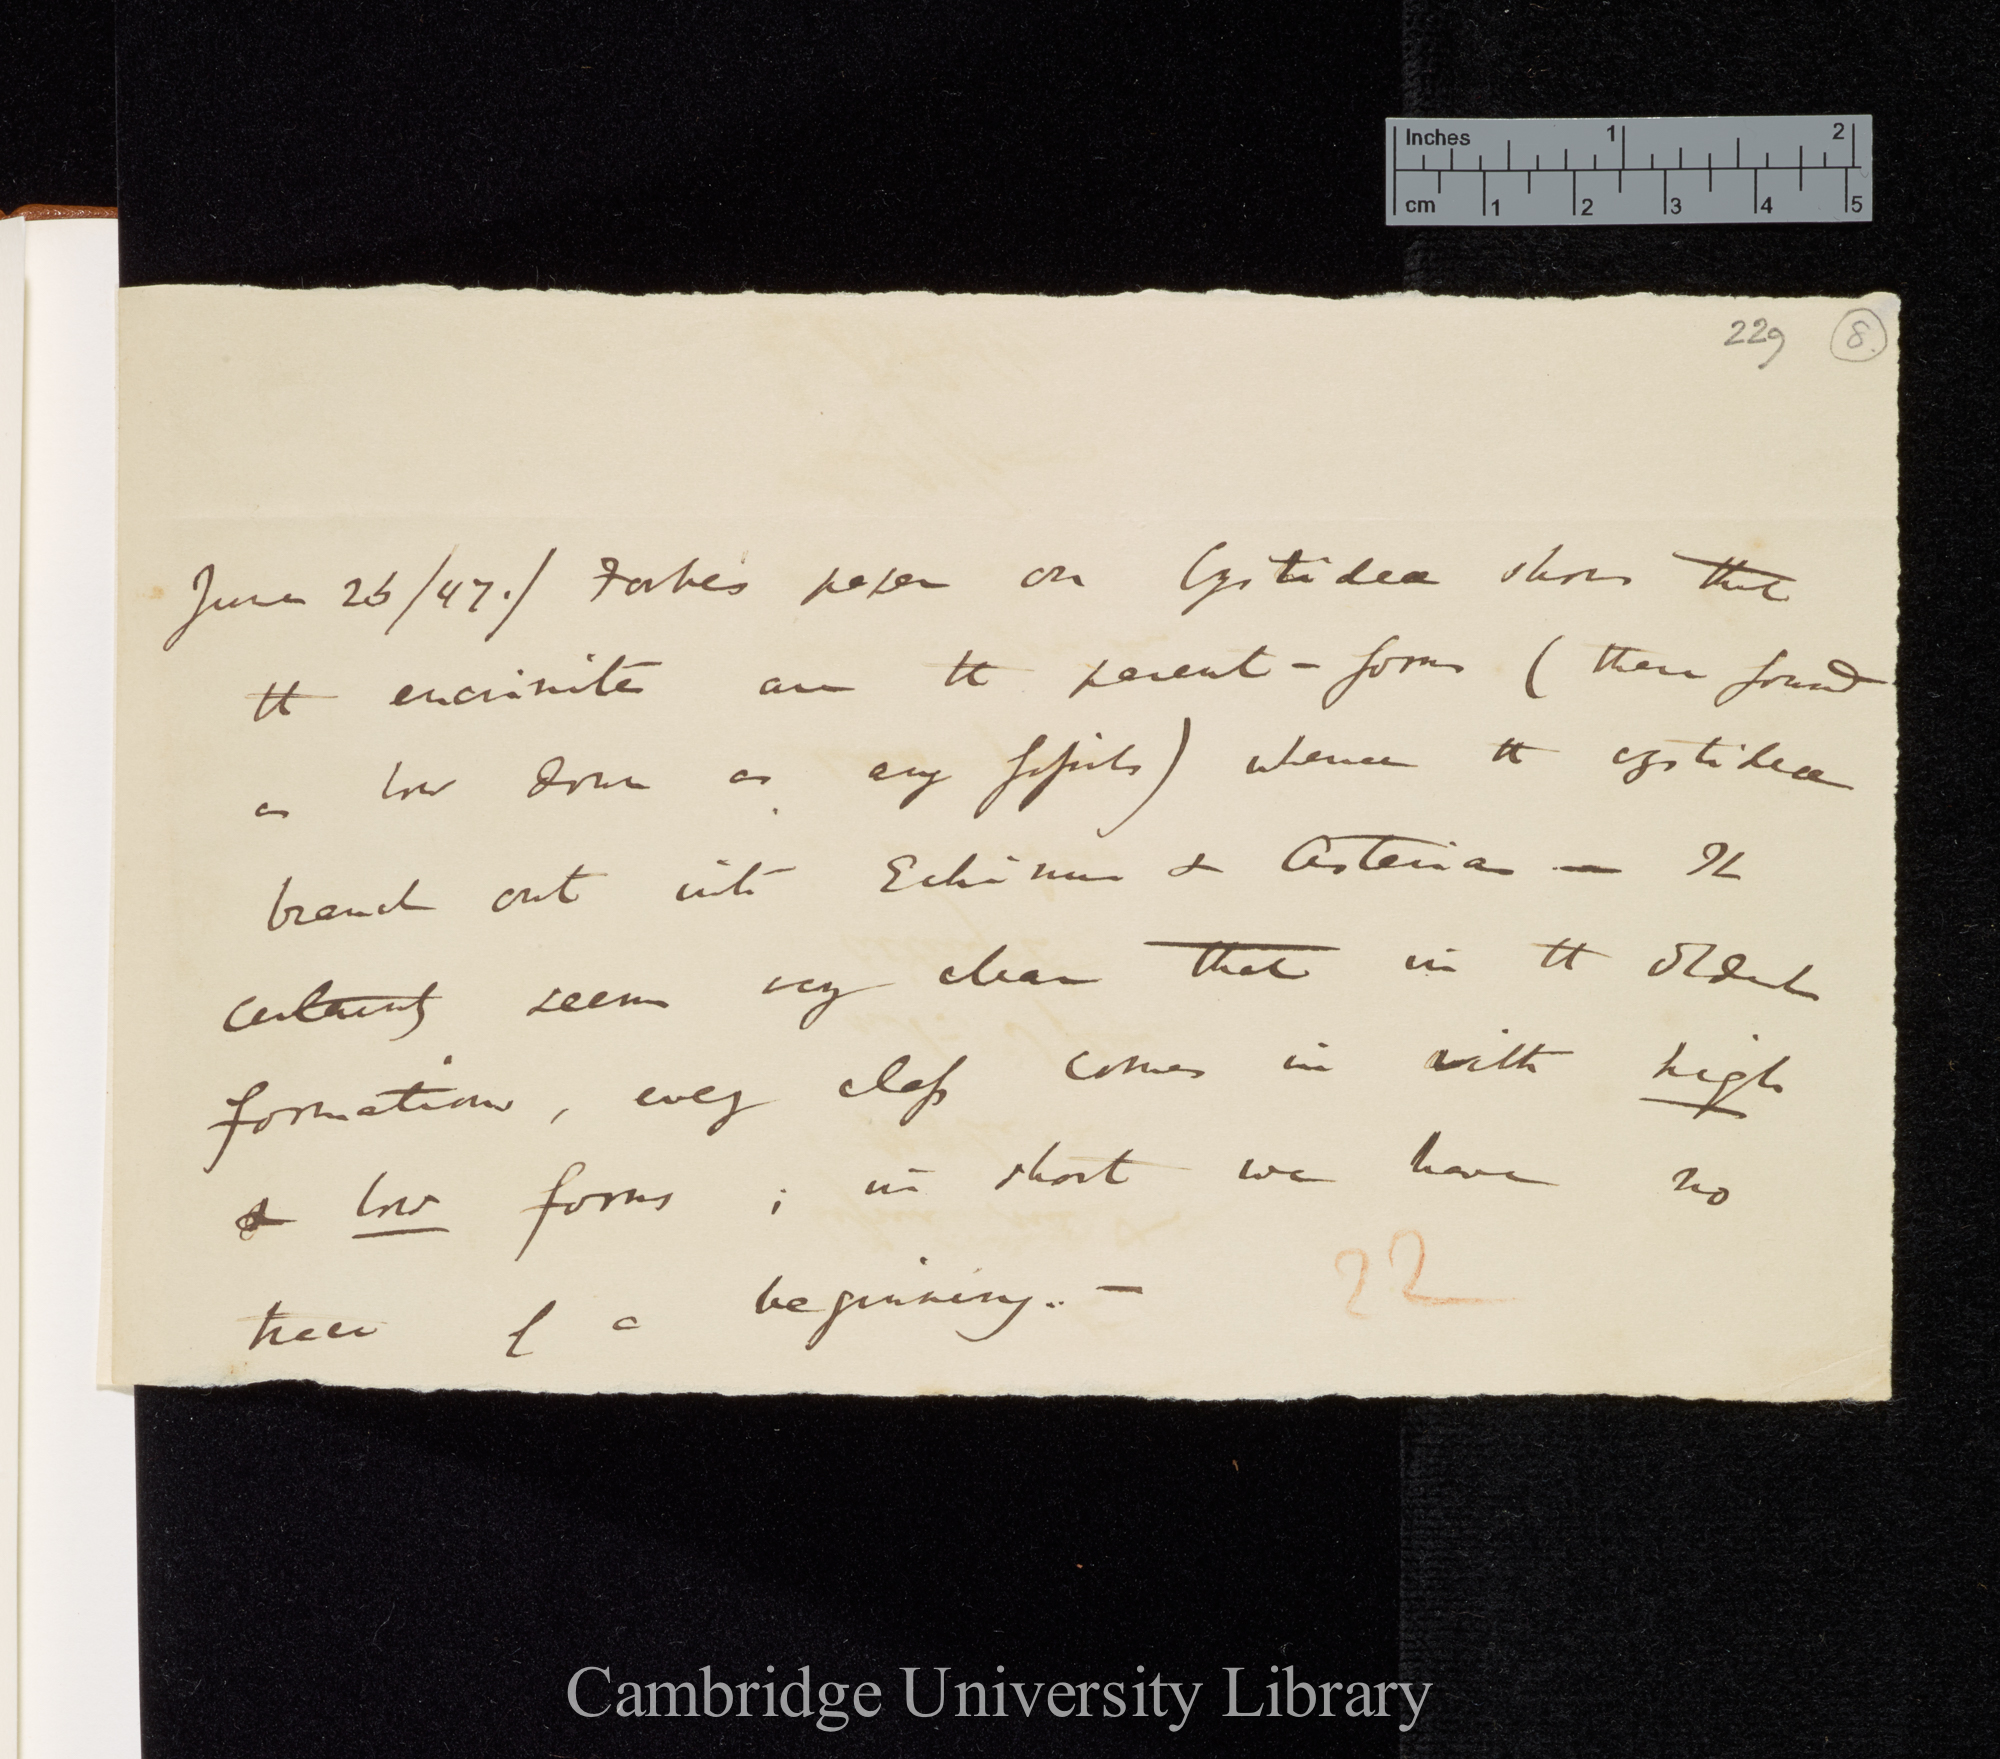 Inches 1 2
cm 1 2 3 4 5
229 8.
June 26/47./ Forbes paper on Cystideæ shows that
tt encrinites are tt parent-forms (these found
as low down as any fossils) whence tt cystideæ
branch out into Echinus & Asterias — It
certainly seems very clear that in tt oldest
formations, every class comes in with high
& low forms ; in short we have no
traces of a beginning. —
22
Cambridge University Library